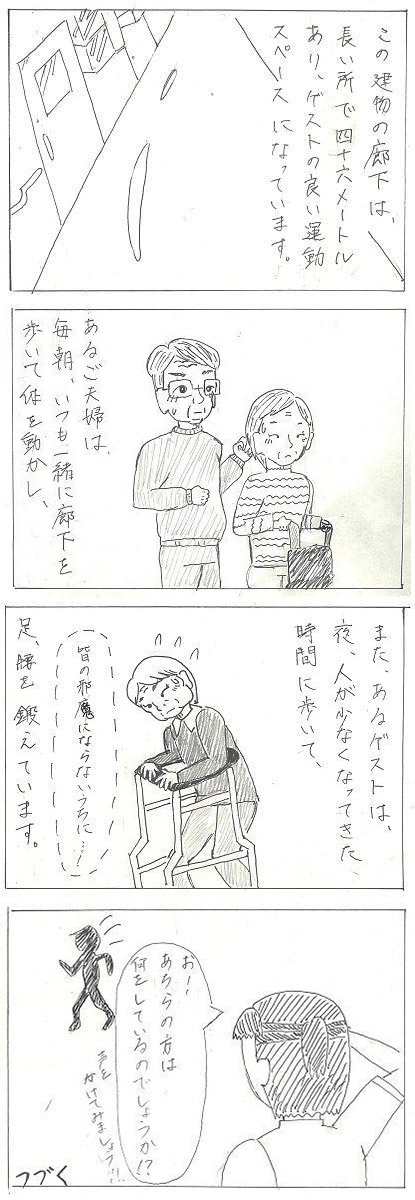 この建物の廊下は、
長い所で四十六メートル
あり、ゲストの良い運動
スペースになっています。
あるご夫婦は、
毎朝、いつも一緒に廊下を
歩いて体を動かし、
また、あるゲストは、
夜、人が少なくなってきた
時間に歩いて、
皆の邪魔にならないうちに…!
足、腰を鍛えています。
お!
あちらの方は
何をしているのでしょうか!?
声を
かけてみましょう!!
つづく